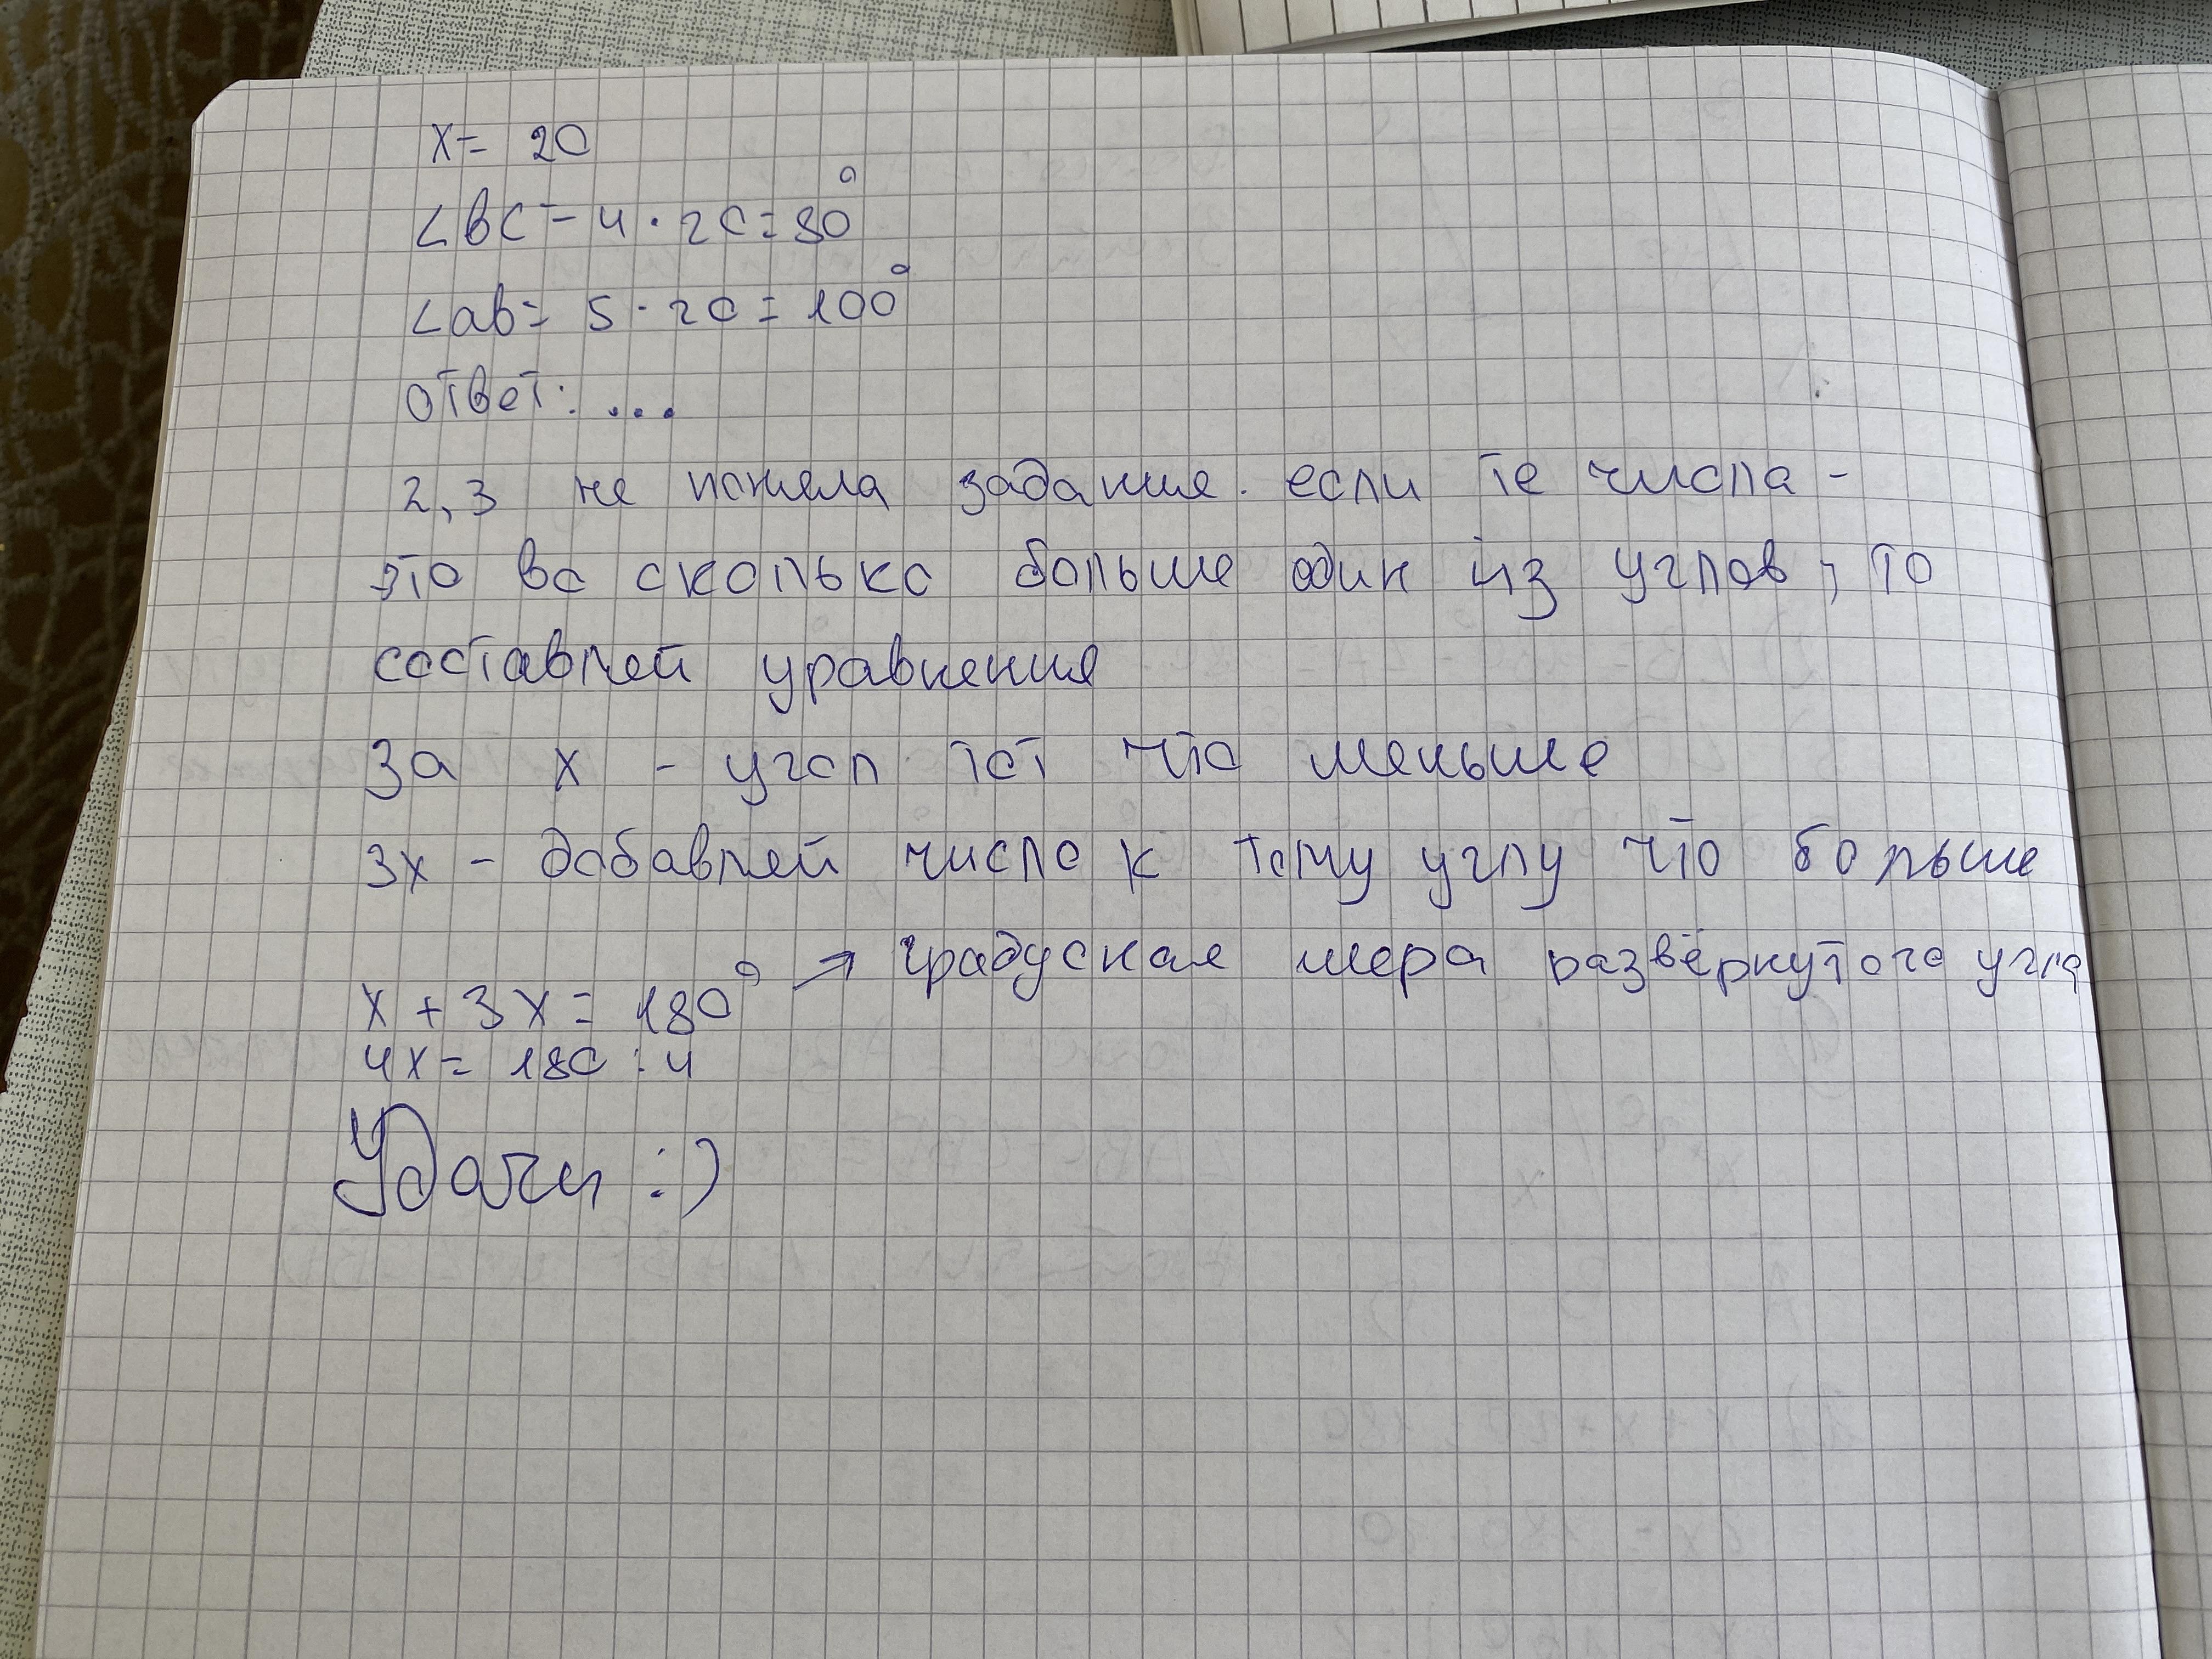 x = 20
∠bc = 4 · 20 = 80°
∠ab = 5 · 20 = 100°
ответ: ...
2, 3 не поняла задание. если те числа -
это во сколько больше один из углов, то
составляй уравнения
За x - угол тот что меньше
3x - добавляй число к тому углу что больше
x + 3x = 180° → градусная мера развёрнутого угла
4x = 180 : 4
Удачи :)